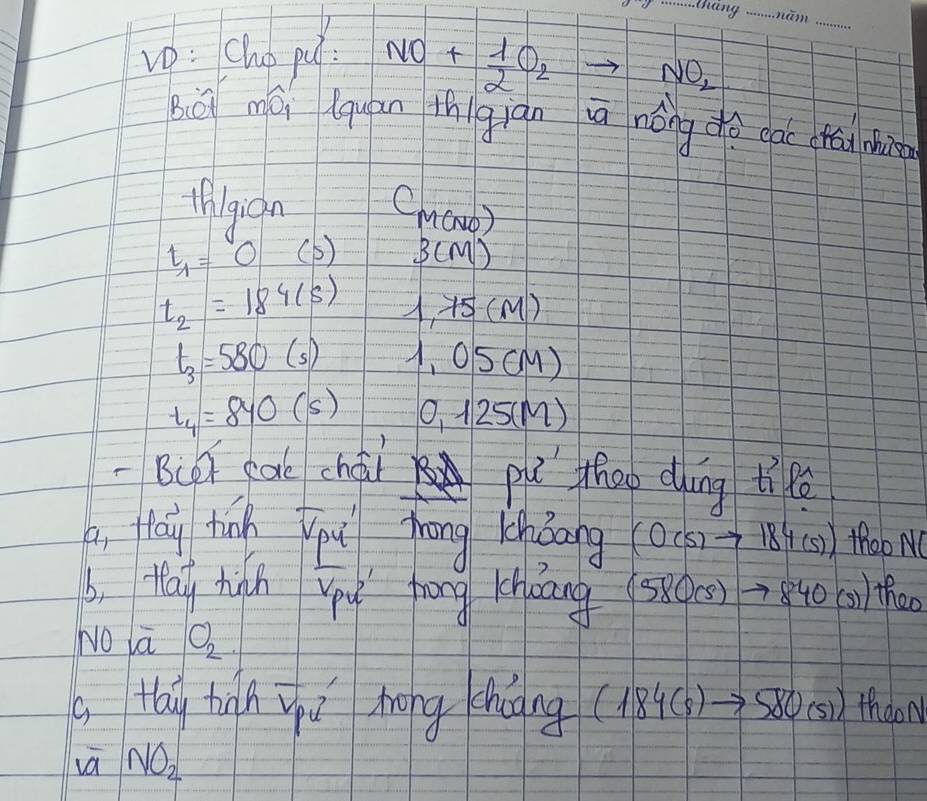 tháng ........ năm ........
VD: Cho pứ: NO + 1/2 O₂ → NO₂
Biết mối lquan th/gian và nồng độ các chất như sau
th/gian C_M(NO)
t₁ = 0 (s) 3(M)
t₂ = 184(s) 1,75(M)
t₃ = 580 (s) 1,05(M)
t₄ = 840 (s) 0,125(M)
- Biết các chất pứ theo đúng tỉ lệ.
a, Hãy tính V̄pứ trong khoảng (0(s) → 184(s)) theo NO
b, Hãy tính V̄pứ trong khoảng (580(s) → 840(s)) theo
NO và O₂.
c, Hãy tính V̄pứ trong khoảng (184(s) → 580(s)) theo N
và NO₂